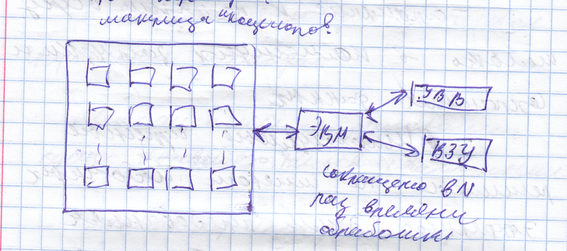 матрица процессоров.
УВВ
ЭВМ
ВЗУ
сокращено в N
раз времяни
обработки